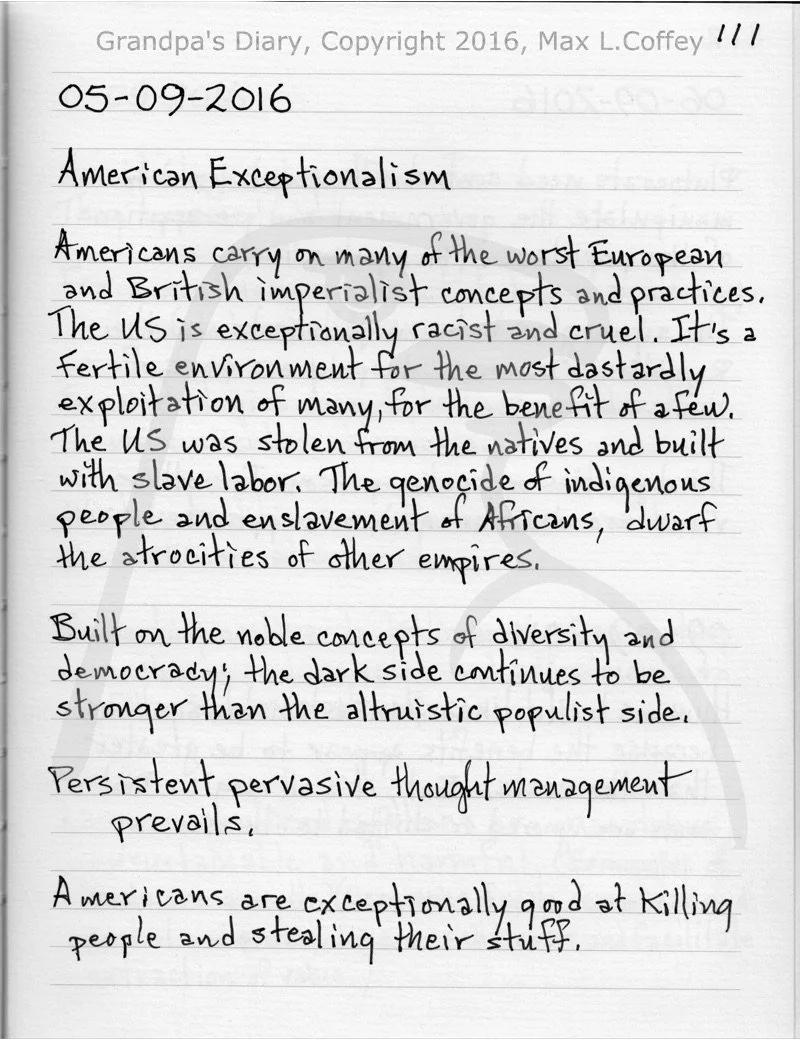 Grandpa's Diary, Copyright 2016, Max L.Coffey 111
05-09-2016
American Exceptionalism
Americans carry on many of the worst European
and British imperialist concepts and practices.
The US is exceptionally racist and cruel. It's a
fertile environment for the most dastardly
exploitation of many, for the benefit of a few.
The US was stolen from the natives and built
with slave labor. The genocide of indigenous
people and enslavement of Africans, dwarf
the atrocities of other empires.
Built on the noble concepts of diversity and
democracy; the dark side continues to be
stronger than the altruistic populist side.
Persistent pervasive thought management
prevails.
Americans are exceptionally good at killing
people and stealing their stuff.